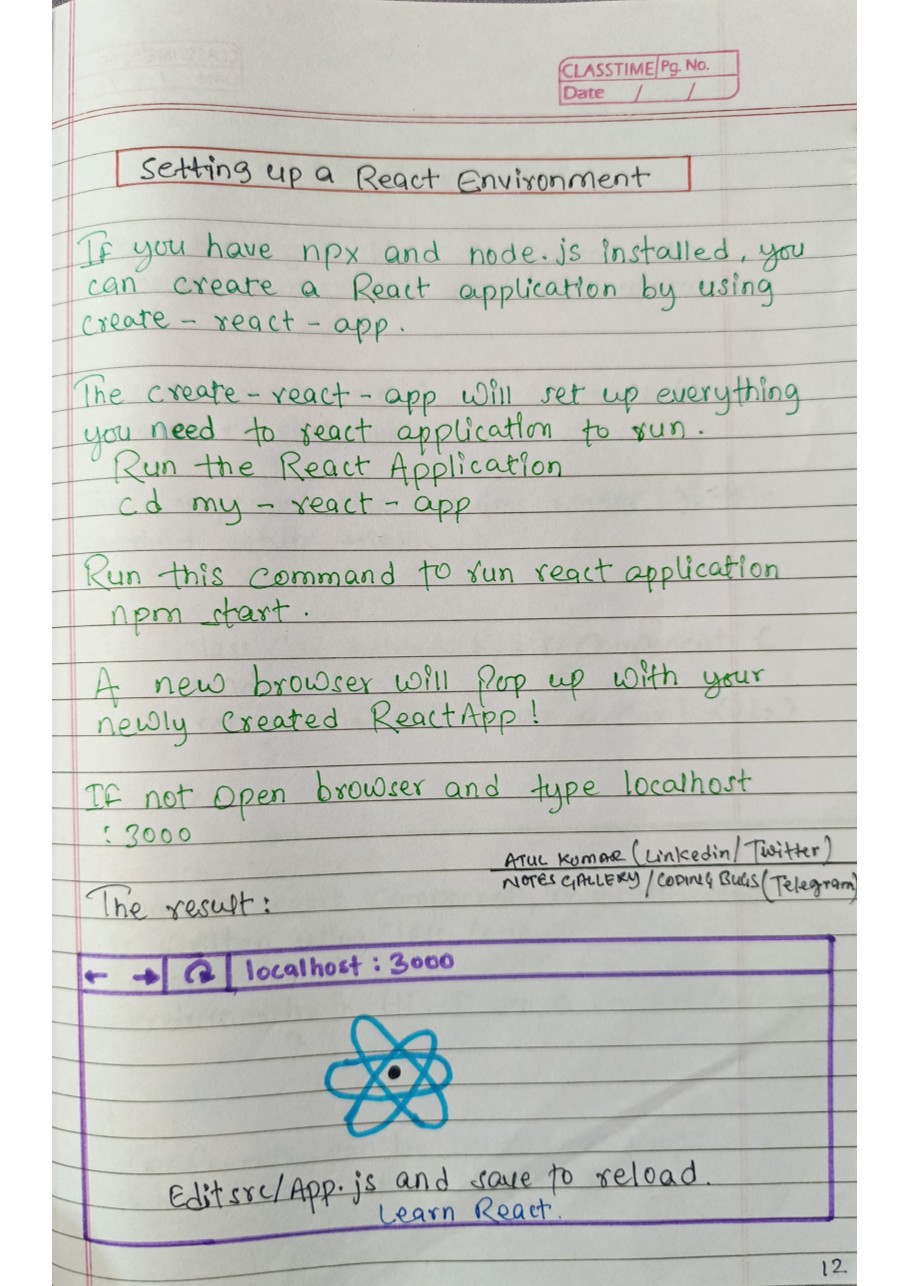 CLASSTIME Pg. No.
Date / /
Setting up a React Environment
If you have npx and node.js installed, you
can create a React application by using
create-react-app.
The create-react-app will set up everything
you need to react application to run.
Run the React Application
cd my-react-app
Run this command to run react application
npm start.
A new browser will Pop up with your
newly created ReactApp!
If not open browser and type localhost
:3000
ATUL KUMAR (Linkedin/Twitter)
NOTES GALLERY/CODING BUGS(Telegram)
The result:
← → localhost:3000
Edit src/App.js and save to reload.
Learn React.
12